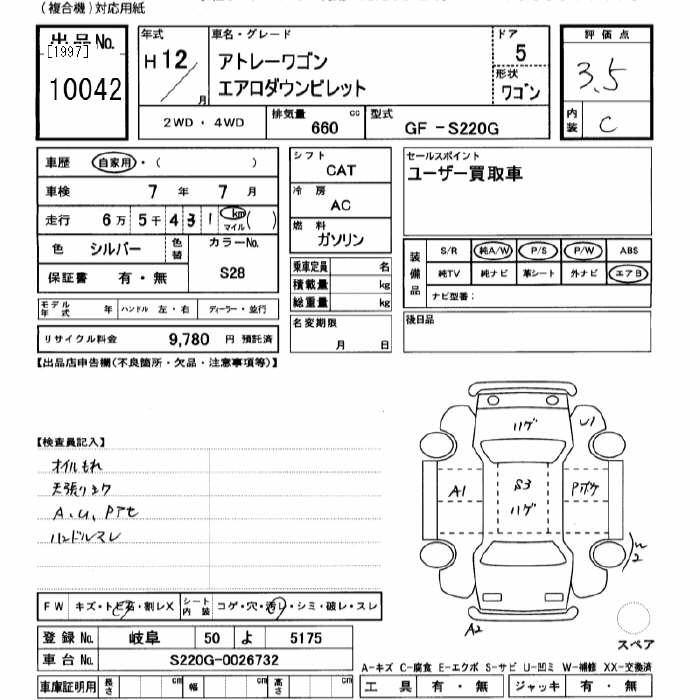 (複合機)対応用紙
出品No.
[1997]
10042
年式
H 12 / 月
車名・グレード
アトレーワゴン
エアロダウンビレット
ドア
5
形状
ワゴン
評価点
3.5
内装
C
2WD・4WD
排気量
660 cc
型式
GF -S220G
車歴 自家用・( )
車検 7 年 7 月
走行 6万 5千 4 3 1 km マイル ( )
色 シルバー 色替 カラーNo.
S28
保証書 有・無
モデル年式 年 ハンドル 左・右 ディーラー・並行
リサイクル料金 9,780 円 預託済
シフト
CAT
冷房
AC
燃料
ガソリン
乗車定員 名
積載量 kg
総重量 kg
名変期限
月 日
セールスポイント
ユーザー買取車
装備品
S/R 純A/W P/S P/W ABS
純TV 純ナビ 革シート 外ナビ エアB
ナビ型番:
後日品
【出品店申告欄(不良箇所・欠品・注意事項等)】
【検査員記入】
オイルもれ
天張りヨゴレ
A.U.Pテセ
ハンドルスレ
ハゲ
U1
A1
S3
ハゲ
Pボケ
W2
A2
スペア
FW キズ・トビ石・割レX シート内装 コゲ・穴・汚レ・シミ・破レ・スレ
登録No. 岐阜 50 よ 5175
車台No. S220G-0026732
車庫証明用 長さ cm 幅 cm 高さ cm
A-キズ C-腐食 E-エクボ S-サビ U-凹ミ W-補修 XX-交換済
工具 有・無 ジャッキ 有・無